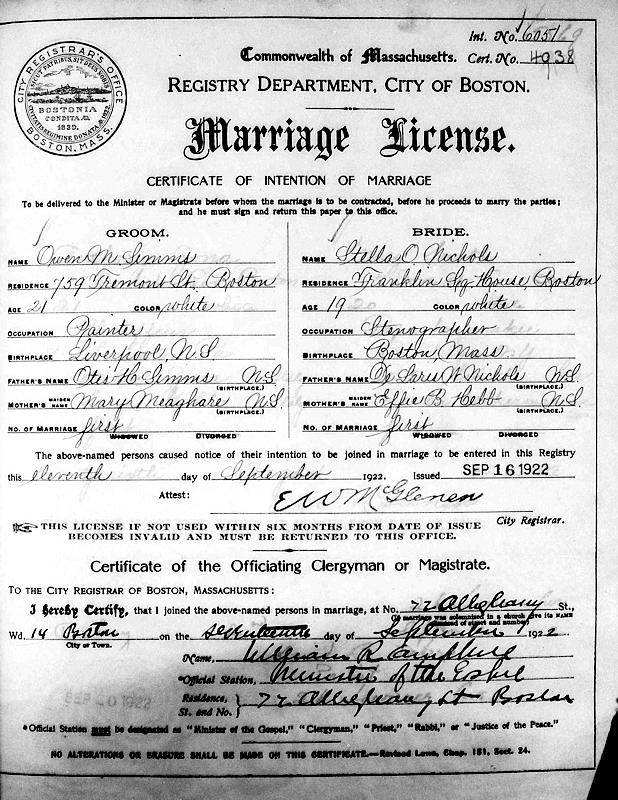 Int. No. 6051
Commonwealth of Massachusetts. Cert. No. 4938
REGISTRY DEPARTMENT, CITY OF BOSTON.
CITY REGISTRAR'S OFFICE BOSTON, MASS.
SICUT PATRIBUS, SIT DEUS NOBIS
BOSTONIA
CONDITA A.D.
1630.
CIVITATIS REGIMINE DONATA A.D. 1822.
Marriage License.
CERTIFICATE OF INTENTION OF MARRIAGE
To be delivered to the Minister or Magistrate before whom the marriage is to be contracted, before he proceeds to marry the parties;
and he must sign and return this paper to this office.
GROOM. BRIDE.
NAME Owen M Simms NAME Stella O. Nichols
RESIDENCE 759 Tremont St. Boston RESIDENCE Franklin Sq. House Boston
AGE 21 COLOR white AGE 19 COLOR white
OCCUPATION Painter OCCUPATION Stenographer
BIRTHPLACE Liverpool, N.S. BIRTHPLACE Boston, Mass
FATHER'S NAME Otis H Simms N.S. (BIRTHPLACE.) FATHER'S NAME De Lares W Nichols N.S. (BIRTHPLACE.)
MOTHER'S MAIDEN NAME Mary Meaghare N.S. (BIRTHPLACE.) MOTHER'S MAIDEN NAME Effie B Hebb N.S. (BIRTHPLACE.)
NO. OF MARRIAGE first WIDOWED DIVORCED NO. OF MARRIAGE first WIDOWED DIVORCED
The above-named persons caused notice of their intention to be joined in marriage to be entered in this Registry
this eleventh day of September 1922. Issued SEP 16 1922
Attest: E W McGlenen
City Registrar.
THIS LICENSE IF NOT USED WITHIN SIX MONTHS FROM DATE OF ISSUE
BECOMES INVALID AND MUST BE RETURNED TO THIS OFFICE.
Certificate of the Officiating Clergyman or Magistrate.
TO THE CITY REGISTRAR OF BOSTON, MASSACHUSETTS:
I hereby Certify, that I joined the above-named persons in marriage, at No. 72 Alleghany St.,
(If marriage was solemnized in a church give its NAME instead of street and number)
Wd. 14 Boston on the seventeenth day of September 1922
City or Town.
Name, William R Campbell
*Official Station, Minister of the Gospel
Residence, St. and No. 72 Alleghany St Boston
SEP 20 1922
*Official Station must be designated as "Minister of the Gospel," "Clergyman," "Priest," "Rabbi," or "Justice of the Peace."
NO ALTERATIONS OR ERASURE SHALL BE MADE ON THIS CERTIFICATE.—Revised Laws, Chap. 151, Sect. 24.